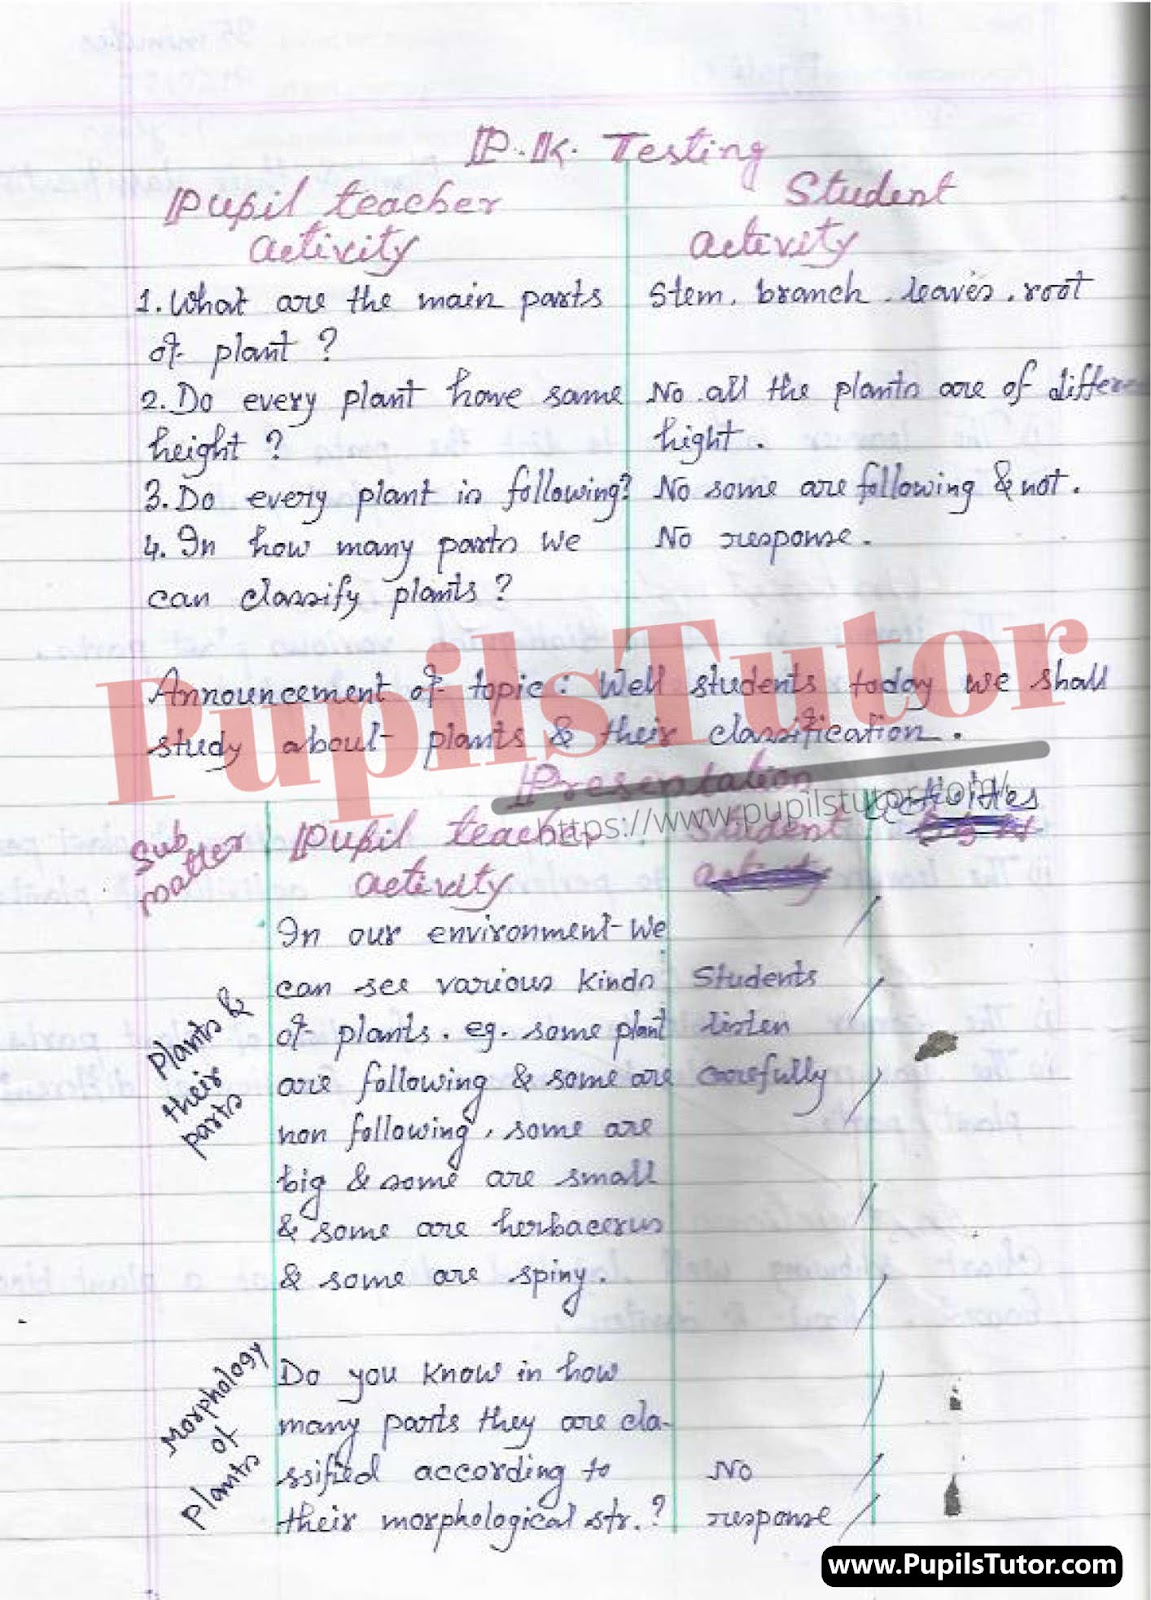 P.K. Testing
Pupil teacher activity
Student activity
1. What are the main parts of plant ?
Stem, branch, leaves, root
2. Do every plant have same height ?
No all the plants are of differe hight.
3. Do every plant is following?
No some are following & not.
4. In how many parts we can classify plants ?
No response.
Announcement of topic: Well students today we shall
study about plants & their classification.
Presentation
Sub matter
Pupil teacher activity
Student
activities
Plants & their parts
In our environment we
can see various kinds
of plants. eg. some plant
are following & some are
non following, some are
big & some are small
& some are herbacerus
& some are spiny.
Students
listen
carefully
Morphology of plants
Do you know in how
many parts they are cla-
ssified according to
their morphological str. ?
No
response
PupilsTutor
https://www.pupilstutor.com/
www.PupilsTutor.com